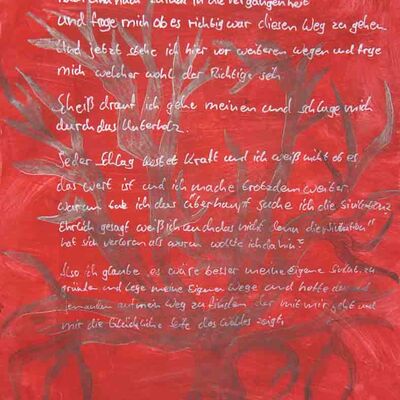 zurück in die Vergangenheit
und frage mich ob es richtig war diesen Weg zu gehen
Und jetzt stehe ich hier vor weiteren wegen und frage
mich welcher wohl der Richtige sei.
Scheiß drauf ich gehe meinen und schlage mich
durch das Unterholz.
Jeder Schlag kostet Kraft und ich weiß nicht ob es
das wert ist und ich mache trotzdem weiter.
warum ich das überhaupt suche ich die
Ehrlich gesagt weiß ich auch das nicht denn die
hat sich verloren als warum wollte ich da hin?
Also ich glaube es wäre besser meine eigene zu
gründen und lege meine Eigenen Wege und hoffe
jemanden auf mein Weg zu finden der mit mir geht und
mir die Glückliche Seite des Waldes zeigt.